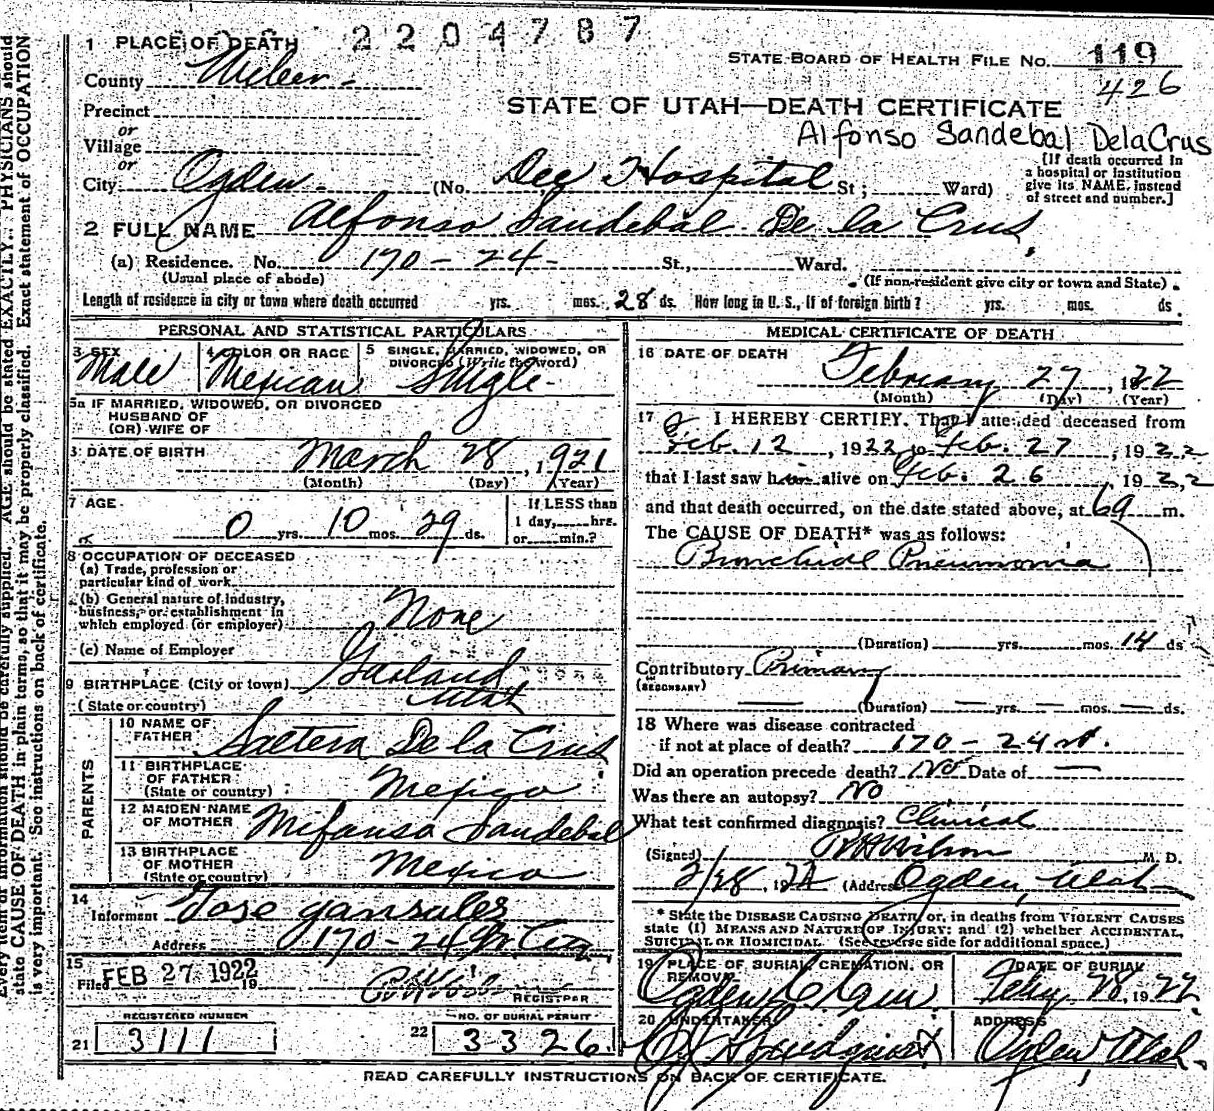 2204787
1 PLACE OF DEATH
STATE BOARD OF HEALTH FILE No. 119
County Weber
426
STATE OF UTAH—DEATH CERTIFICATE
Precinct
or
Village
or
Alfonso Sandebal DelaCrus
City Ogden (No. Dee Hospital St; Ward)
[If death occurred in
a hospital or institution
give its NAME, instead
of street and number.]
2 FULL NAME Alfonso Sandebal De la Crus
(a) Residence. No. 170-24 St., Ward.
(Usual place of abode) (If non-resident give city or town and State)
Length of residence in city or town where death occurred yrs. mos. 28 ds. How long in U. S., if of foreign birth? yrs. mos. ds.
PERSONAL AND STATISTICAL PARTICULARS
3 SEX Male
4 COLOR OR RACE Mexican
5 SINGLE, MARRIED, WIDOWED, OR
DIVORCED (Write the word) Single
5a IF MARRIED, WIDOWED, OR DIVORCED
HUSBAND OF
(OR) WIFE OF
DATE OF BIRTH
March 28, 1921
(Month) (Day) (Year)
7 AGE
0 yrs. 10 mos. 29 ds.
If LESS than
1 day, hrs.
or min.?
8 OCCUPATION OF DECEASED
(a) Trade, profession or
particular kind of work
(b) General nature of industry,
business, or establishment in
which employed (or employer) None
(c) Name of Employer
9 BIRTHPLACE (City or town) Garland
(State or country) Utah
PARENTS
10 NAME OF
FATHER De la Crus
11 BIRTHPLACE
OF FATHER
(State or country) Mexico
12 MAIDEN NAME
OF MOTHER Sandebal
13 BIRTHPLACE
OF MOTHER
(State or country) Mexico
14
Informant Jose gansales
Address 170-24 St City
15
Filed FEB 27 1922 19
REGISTRAR
REGISTERED NUMBER
21 3111
NO. OF BURIAL PERMIT
22 3326
MEDICAL CERTIFICATE OF DEATH
16 DATE OF DEATH
February 27, 1922
(Month) (Day) (Year)
17 I HEREBY CERTIFY, That I attended deceased from
Feb. 12, 1922 to Feb. 27, 1922
that I last saw him alive on Feb. 26, 1922
and that death occurred, on the date stated above, at 6a m.
The CAUSE OF DEATH* was as follows:
Bronchial Pneumonia
(Duration) yrs. mos. 14 ds
Contributory Primary
(SECONDARY)
(Duration) yrs. mos. ds.
18 Where was disease contracted
if not at place of death? 170-24 st.
Did an operation precede death? No Date of
Was there an autopsy? No
What test confirmed diagnosis? Clinical
(Signed) Wilson M. D.
2/28, 1922 (Address) Ogden, Utah
* State the DISEASE CAUSING DEATH, or, in deaths from VIOLENT CAUSES
state (1) MEANS AND NATURE OF INJURY; and (2) whether ACCIDENTAL,
SUICIDAL OR HOMICIDAL. (See reverse side for additional space.)
19 PLACE OF BURIAL, CREMATION, OR
REMOVAL
Ogden
DATE OF BURIAL
Feby 28, 1922
20 UNDERTAKER
ADDRESS
Ogden, Utah
READ CAREFULLY INSTRUCTIONS ON BACK OF CERTIFICATE.
Every item of information should be carefully supplied. AGE should be stated EXACTLY. PHYSICIANS should
state CAUSE OF DEATH in plain terms, so that it may be properly classified. Exact statement of OCCUPATION
is very important. See instructions on back of certificate.